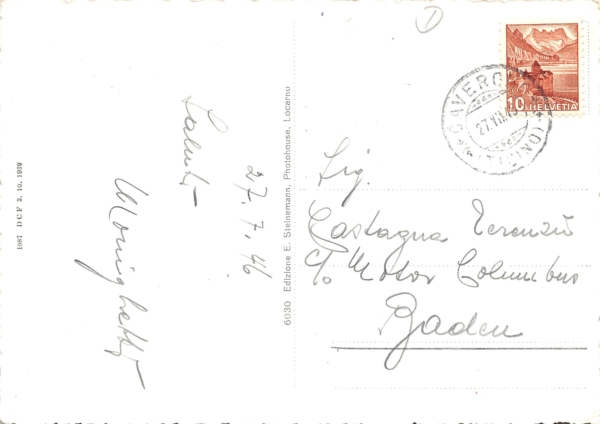 Saluti
27.7.46
Monighetti
1087 DCF 2. 10. 1939
6030 Edizione E. Steinemann, Photohouse, Locarno
10 HELVETIA
27.VII.
(TICINO)
Sig.
Castagna Terenzio
c/o Motor Columbus
Baden